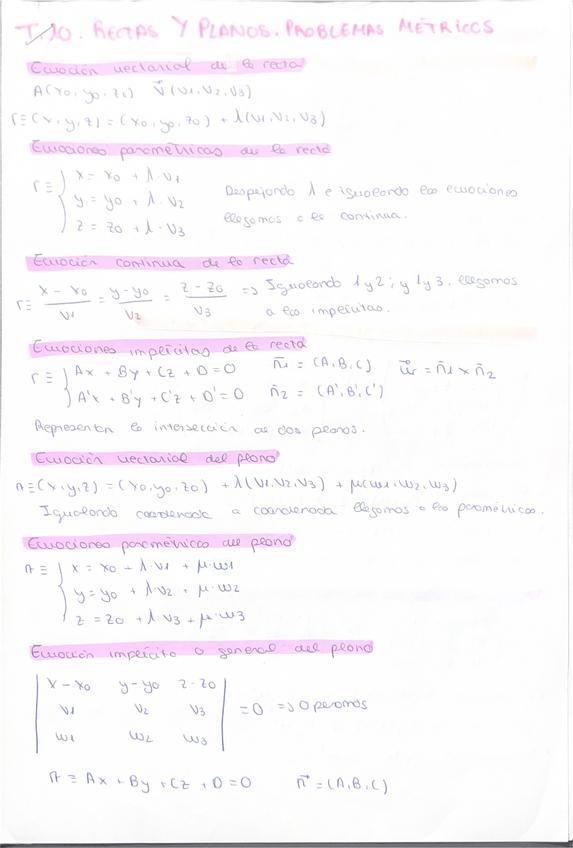 T.10. RECTAS Y PLANOS. PROBLEMAS MÉTRICOS
Ecuación vectorial de la recta
A(x0, y0, z0) V⃗(v1, v2, v3)
r≡(x, y, z) = (x0, y0, z0) + λ(v1, v2, v3)
Ecuaciones paramétricas de la recta
r≡ { x = x0 + λ·v1
y = y0 + λ·v2
z = z0 + λ·v3
Despejando λ e igualando las ecuaciones
llegamos a la continua.
Ecuación continua de la recta
r≡ (x - x0)/v1 = (y - y0)/v2 = (z - z0)/v3 => Igualando 1 y 2; y 1 y 3, llegamos
a las implícitas.
Ecuaciones implícitas de la recta
r≡ { Ax + By + Cz + D = 0 n⃗1 = (A, B, C) u⃗r = n⃗1 × n⃗2
A'x + B'y + C'z + D' = 0 n⃗2 = (A', B', C')
Representan la intersección de dos planos.
Ecuación vectorial del plano
π≡(x, y, z) = (x0, y0, z0) + λ(v1, v2, v3) + μ(w1, w2, w3)
Igualando coordenada a coordenada llegamos a las paramétricas.
Ecuaciones paramétrica del plano
π≡ { x = x0 + λ·v1 + μ·w1
y = y0 + λ·v2 + μ·w2
z = z0 + λ·v3 + μ·w3
Ecuación implícita o general del plano
| x - x0 y - y0 z - z0 |
| v1 v2 v3 | = 0 => Operamos
| w1 w2 w3 |
π ≡ Ax + By + Cz + D = 0 n⃗ = (A, B, C)